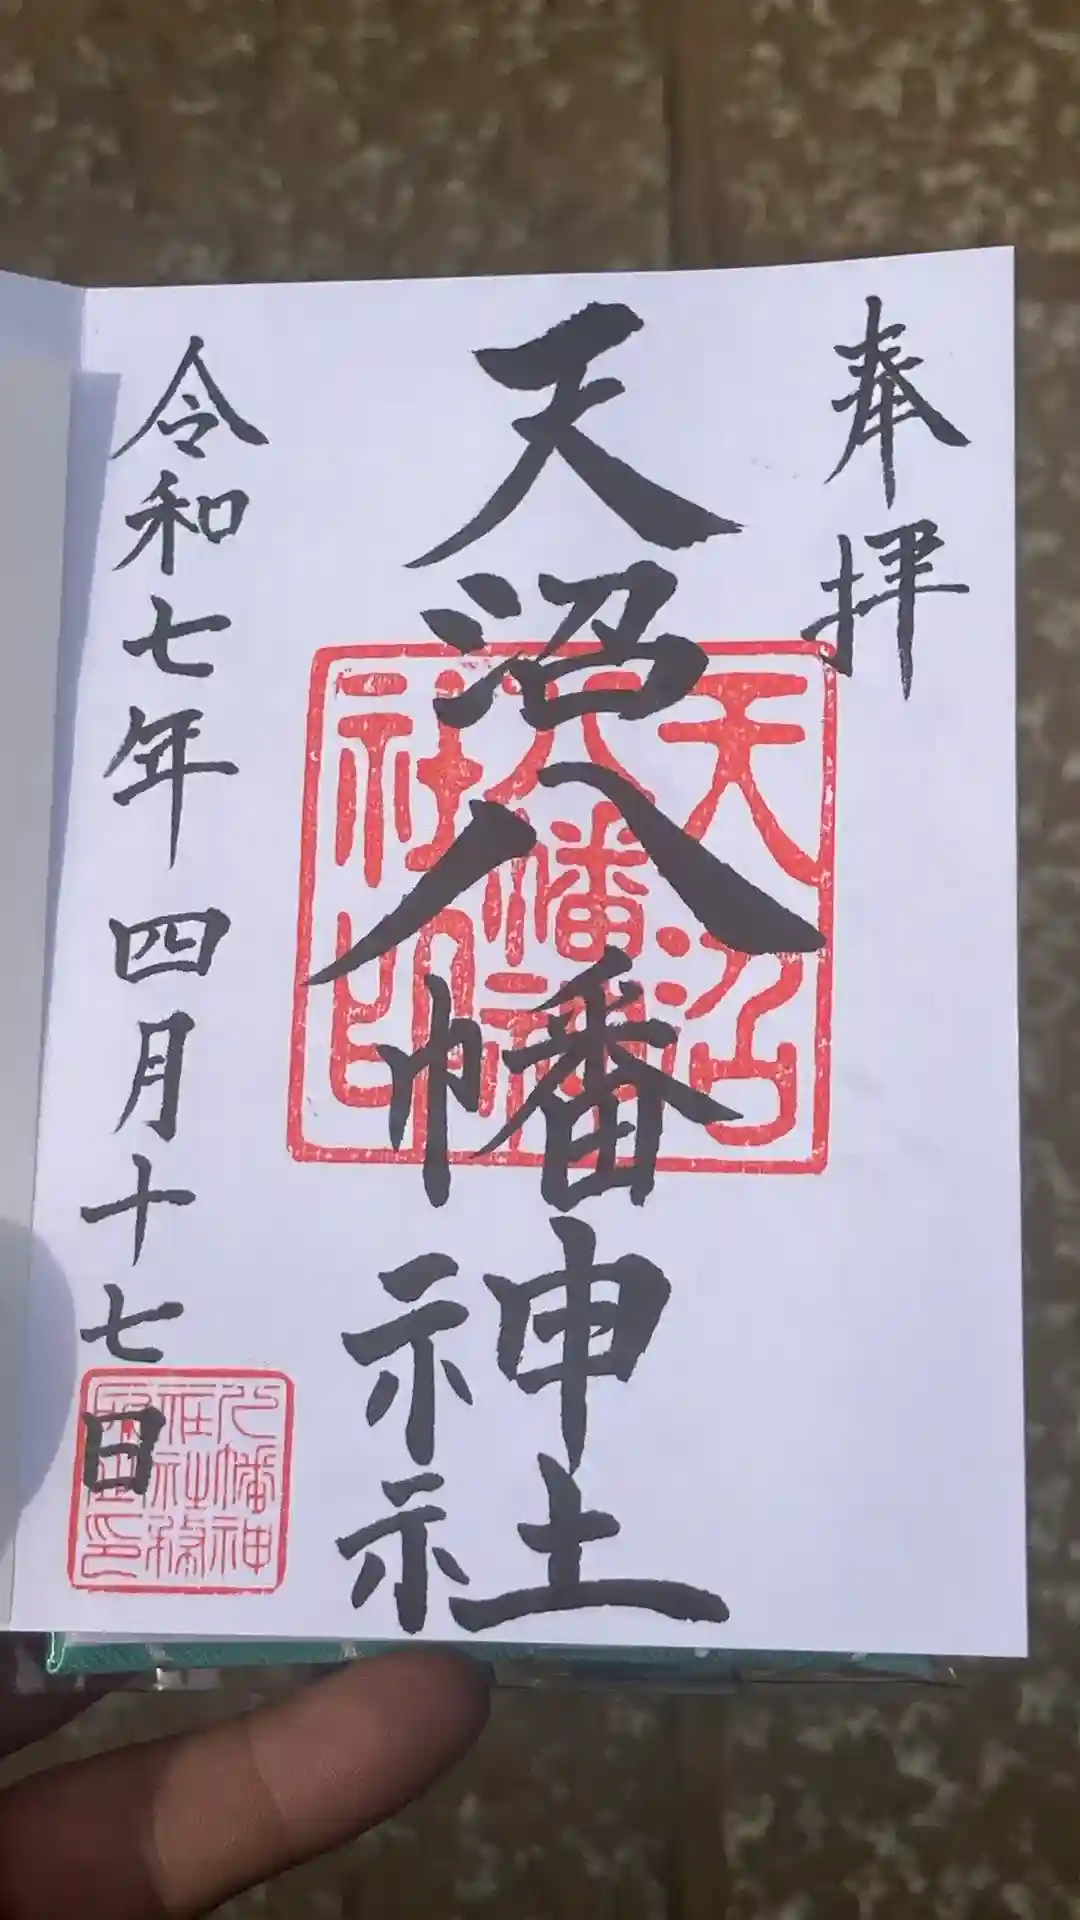 奉拝
天沼八幡神社
天沼八幡神社印
令和七年四月十七日
八幡神社社務